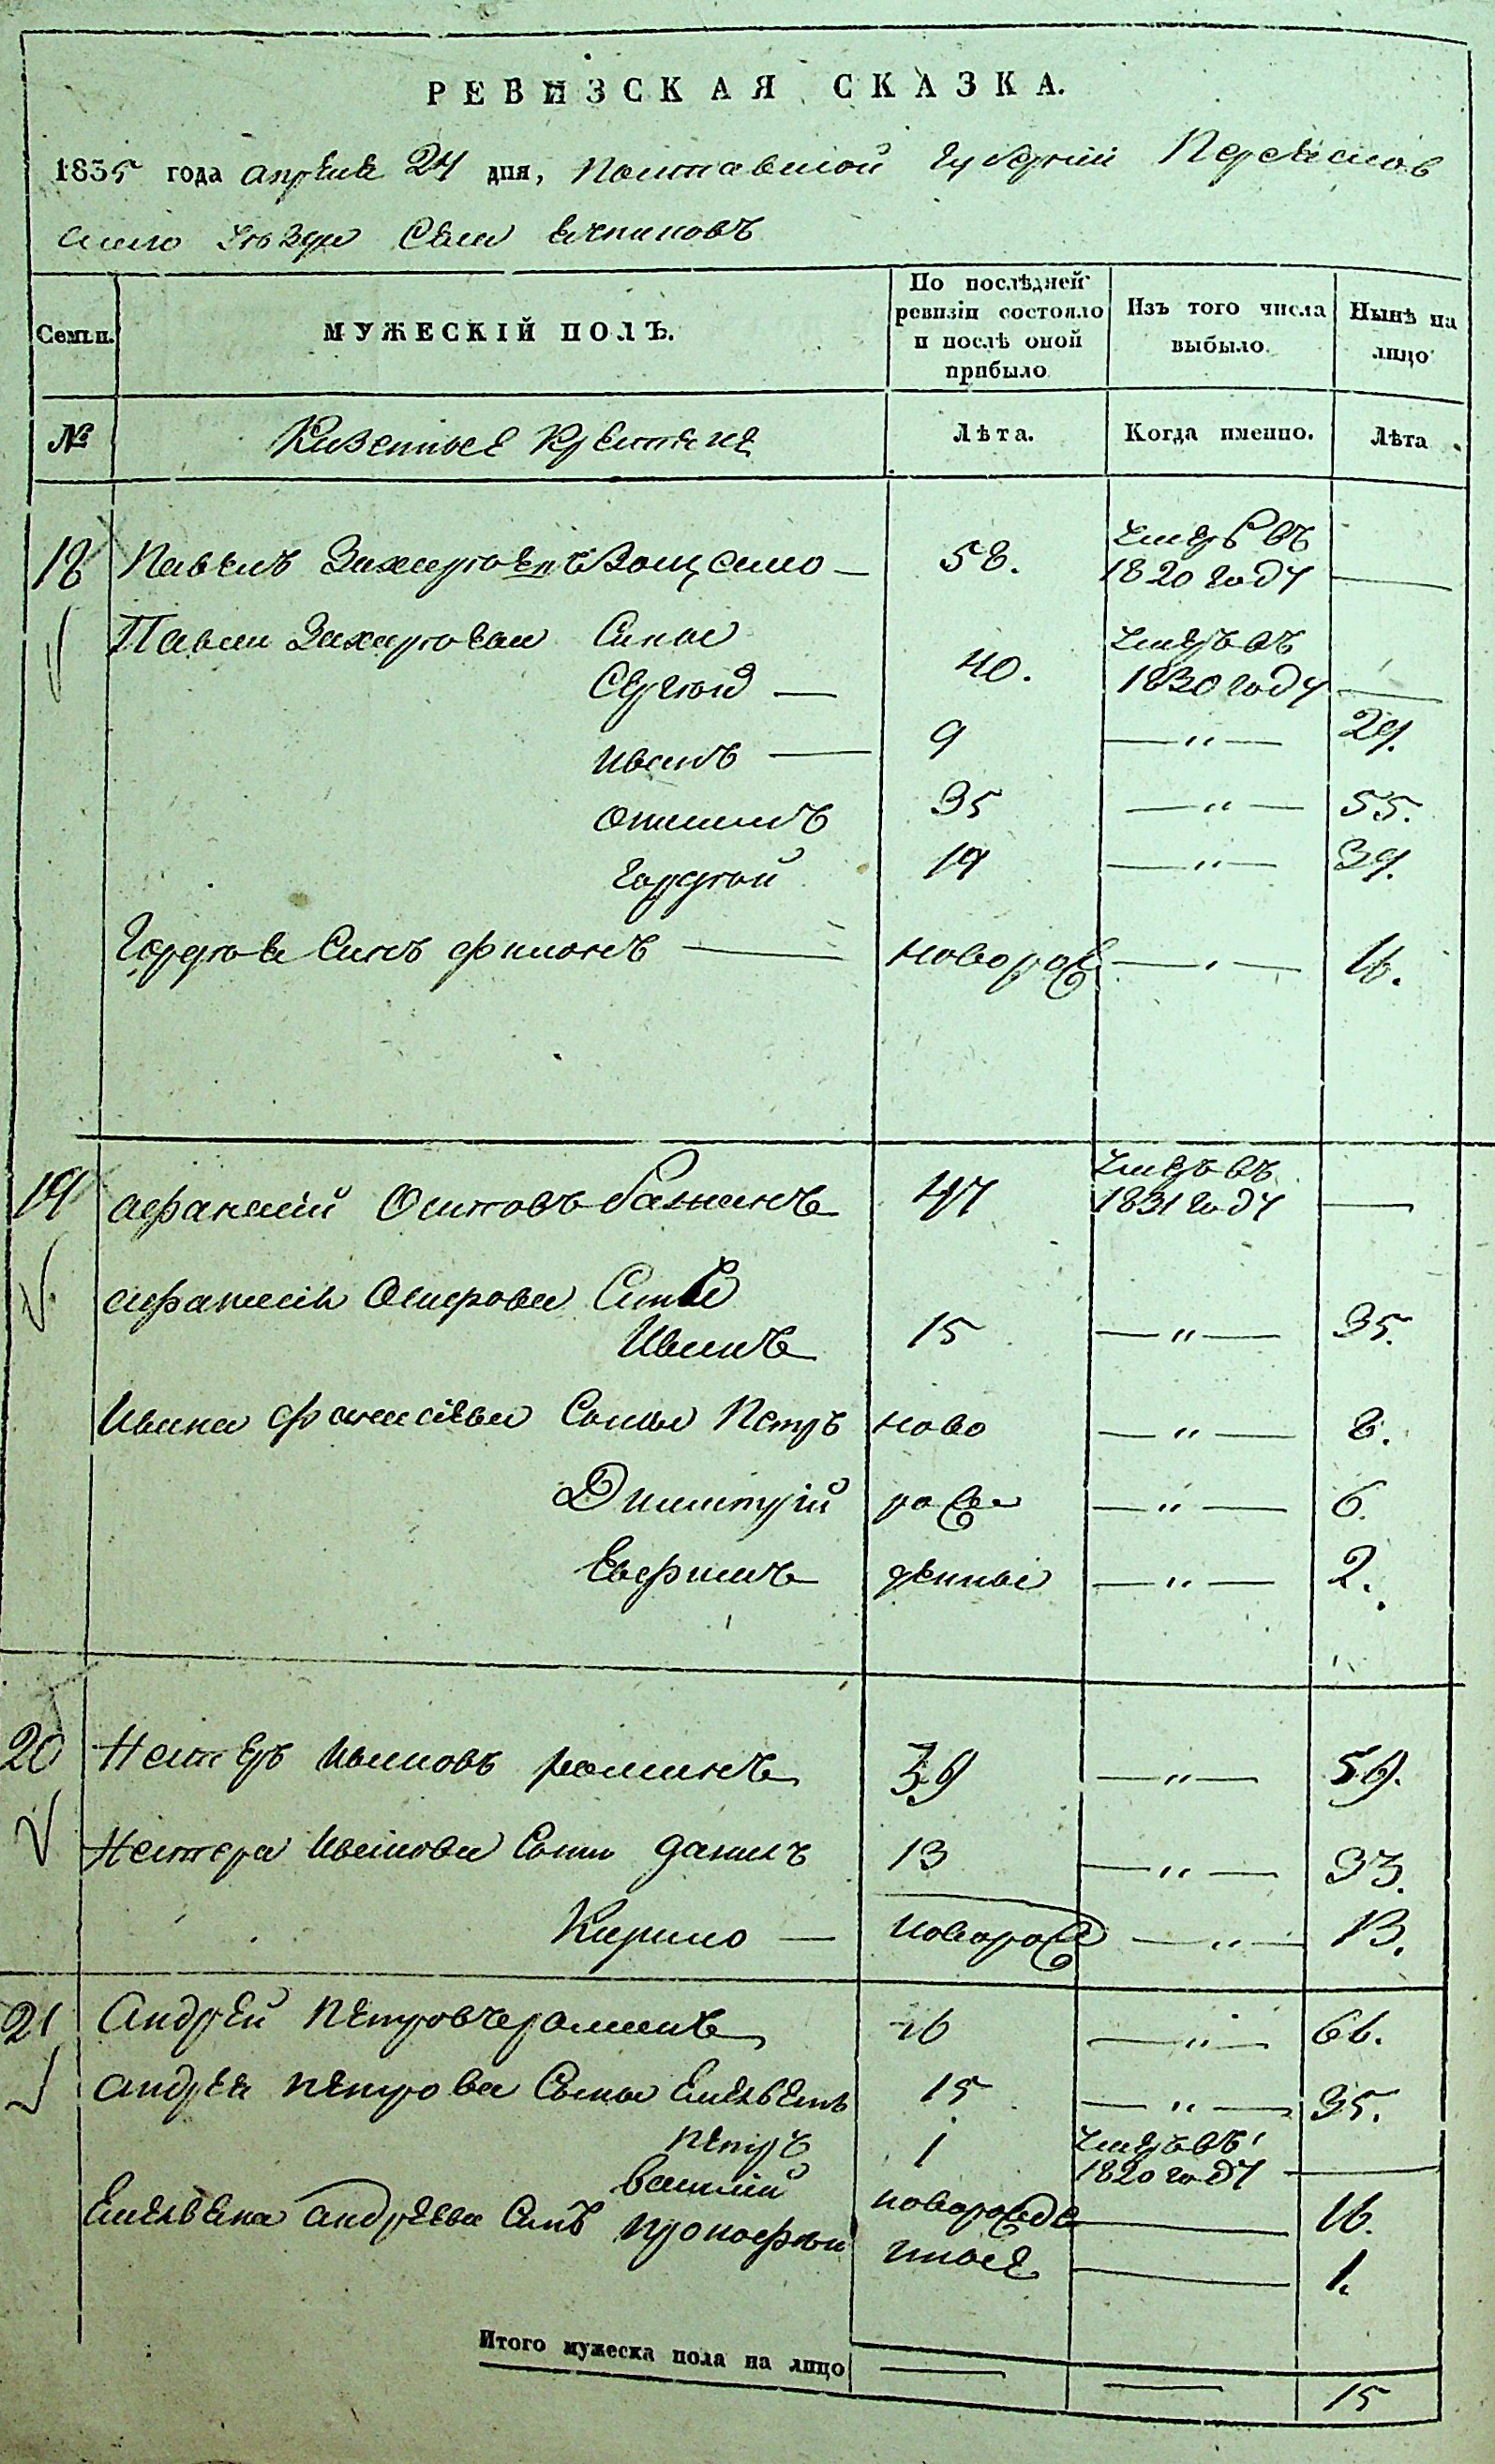 РЕВИЗСКАЯ СКАЗКА.
1835 года апреля 24 дня, Полтавской губернии Переяслов
ского уезда Села
Семьи. МУЖЕСКІЙ ПОЛЪ. По послѣдней ревизіи состояло и послѣ оной прибыло Изъ того числа выбыло Нынѣ на лицо
№ Казенные Крестяне Лѣта. Когда именно. Лѣта
18 Павелъ Захарговъ 58. умеръ въ 1820 году —
Павла Захаргова Сины
Сергѣй — 40. умеръ въ 1830 году —
Иванъ — 9 — " — 29.
35 — " — 55.
Гордѣй 19 — " — 39.
Гордѣя Синъ Филонъ — новорож — " — 16.
19 афанасій Осиповъ 47 умеръ въ 1831 году —
афанасія Осипова Синъ
Иванъ 15 — " — 35.
Ивана фанасіева Сыны Петръ ново — " — 8.
Димитрій рож — " — 6.
Евфимъ денныі — " — 2.
20 Нестеръ Ивановъ 39 — " — 59.
Нестера Иванова Сыны данилъ 13 — " — 33.
Кирило — новорож — " — 13.
21 Андрей Петровъ 46 — " — 66.
андрея петрова Сыны Емельянъ 15 — " — 35.
петръ 1 умеръ въ 1820 году —
василій новорожде — 16.
Емельяна андрѣева Синъ прокофѣй нные — 1.
Итого мужеска пола на лицо — — 15